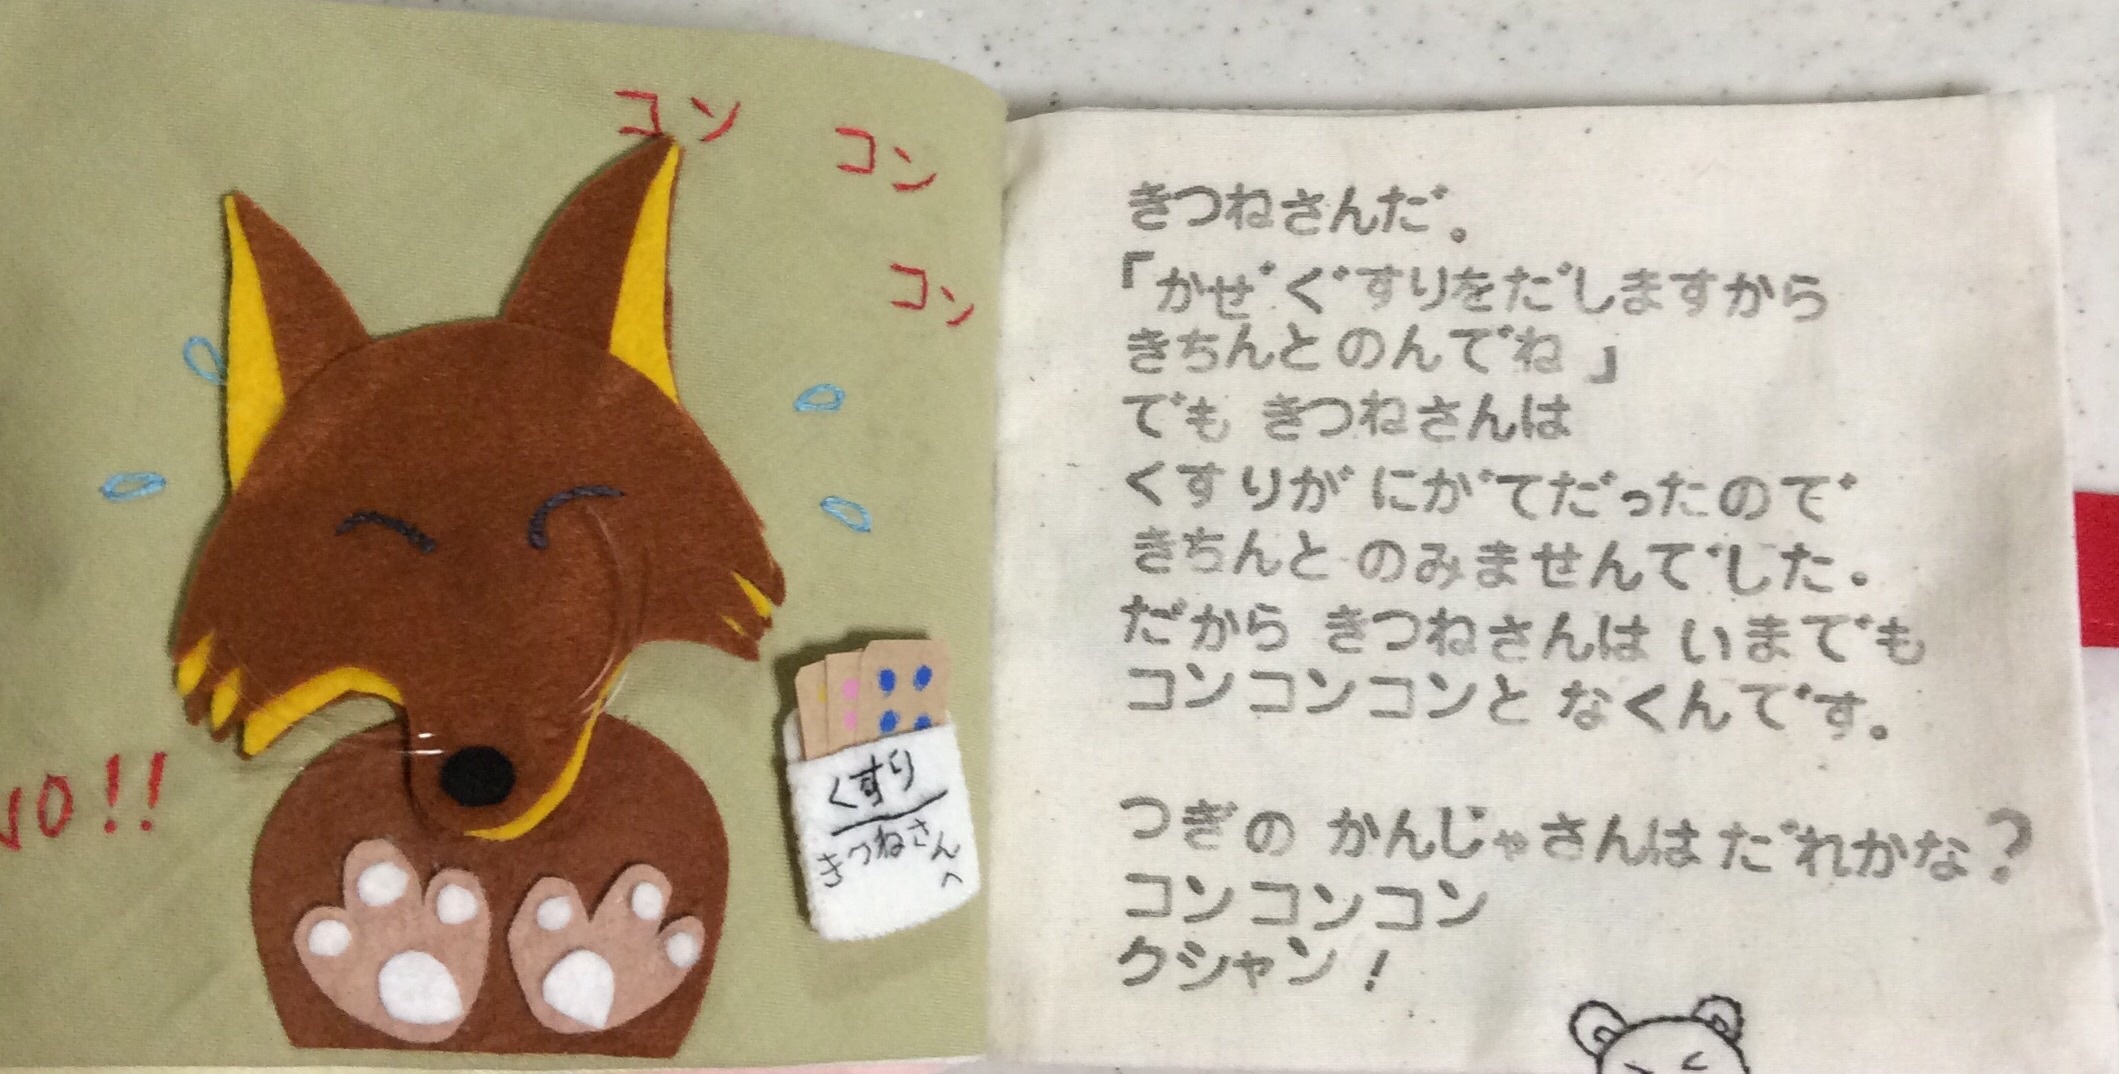 コン
コン
コン
NO!!
くすり
きつねさんへ
きつねさんだ。
「かぜぐすりをだしますから
きちんとのんでね」
でも きつねさんは
くすりが にがてだったので
きちんと のみませんでした。
だから きつねさんは いまでも
コンコンコンと なくんです。
つぎの かんじゃさんは だれかな?
コンコンコン
クシャン!